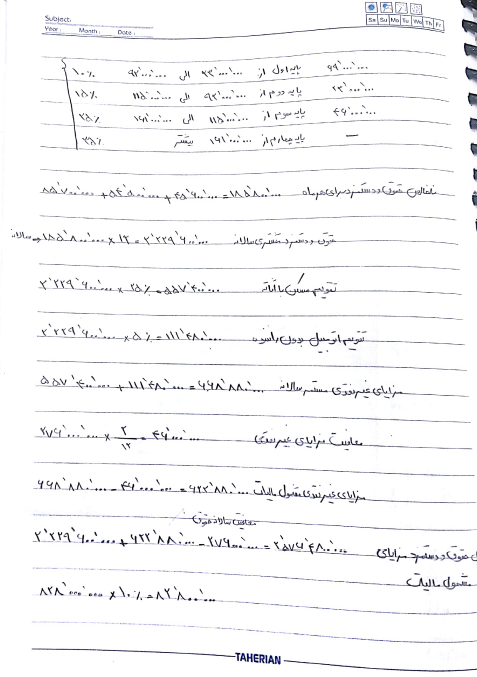 Subject:
Year: Month: Date:
Sa Su Mo Tu We Th Fr
۱۰٪ پایه اول از ۲۳٬۰۰۰٬۰۰۰ الی ۹۲٬۰۰۰٬۰۰۰ ۶۹٬۰۰۰٬۰۰۰
۱۵٪ پایه دوم از ۹۲٬۰۰۰٬۰۰۰ الی ۱۱۵٬۰۰۰٬۰۰۰ ۲۳٬۰۰۰٬۰۰۰
۲۵٪ پایه سوم از ۱۱۵٬۰۰۰٬۰۰۰ الی ۱۶۱٬۰۰۰٬۰۰۰ ۴۶٬۰۰۰٬۰۰۰
۳۵٪ پایه چهارم از ۱۶۱٬۰۰۰٬۰۰۰ بیشتر —
ناخالص حقوق و دستمزد برای هر ماه ۸۵٬۷۰۰٬۰۰۰ + ۵۴٬۹۰۰٬۰۰۰ + ۴۵٬۲۰۰٬۰۰۰ = ۱۸۵٬۸۰۰٬۰۰۰
حقوق و دستمزد مستمر سالانه ۱۸۵٬۸۰۰٬۰۰۰ × ۱۲ = ۲٬۲۲۹٬۶۰۰٬۰۰۰ سالانه
تقویم مسکن با اثاثه ۲٬۲۲۹٬۶۰۰٬۰۰۰ × ۲۵٪ = ۵۵۷٬۴۰۰٬۰۰۰
تقویم اتومبیل بدون راننده ۲٬۲۲۹٬۶۰۰٬۰۰۰ × ۵٪ = ۱۱۱٬۴۸۰٬۰۰۰
مزایای غیر نقدی مستمر سالانه ۵۵۷٬۴۰۰٬۰۰۰ + ۱۱۱٬۴۸۰٬۰۰۰ = ۶۶۸٬۸۸۰٬۰۰۰
معافیت مزایای غیر نقدی ۲۷۶٬۰۰۰٬۰۰۰ × ۲/۱۲ = ۴۶٬۰۰۰٬۰۰۰
مزایای غیر نقدی مشمول مالیات ۶۶۸٬۸۸۰٬۰۰۰ - ۴۶٬۰۰۰٬۰۰۰ = ۶۲۲٬۸۸۰٬۰۰۰
معافیت سالانه حقوق
حقوق و دستمزد مزایای ۲٬۲۲۹٬۶۰۰٬۰۰۰ + ۶۲۲٬۸۸۰٬۰۰۰ - ۲۷۶٬۰۰۰٬۰۰۰ = ۲٬۵۷۶٬۴۸۰٬۰۰۰
مشمول مالیات
۸۲۸٬۰۰۰٬۰۰۰ × ۱۰٪ = ۸۲٬۸۰۰٬۰۰۰
TAHERIAN